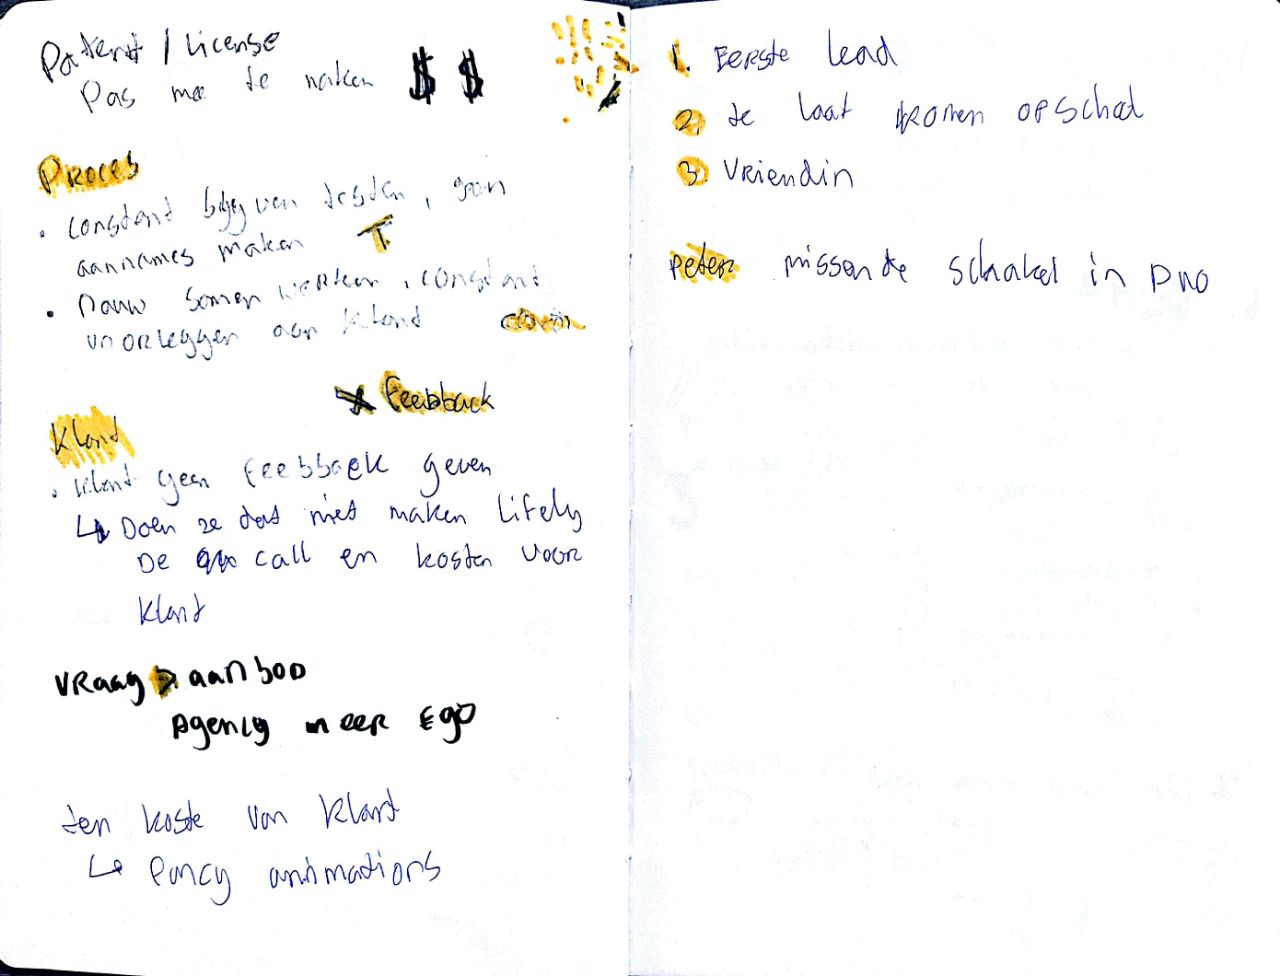 Patent / License
Pas mee te maken $ $
Proces
• constant blijven testen, geen
aannames maken
• nauw samen werken, constant
voorleggen aan klant
Feebback
Klant
• klant geen feebback geven
↳ Doen ze dat niet maken
De call en kosten voor
klant
Vraag > aanbod
Agency meer Ego
ten koste van klant
↳ Fancy animations
1. Eerste lead
2. te laat komen opschool
3. Vriendin
Peter missende schakel in Duo